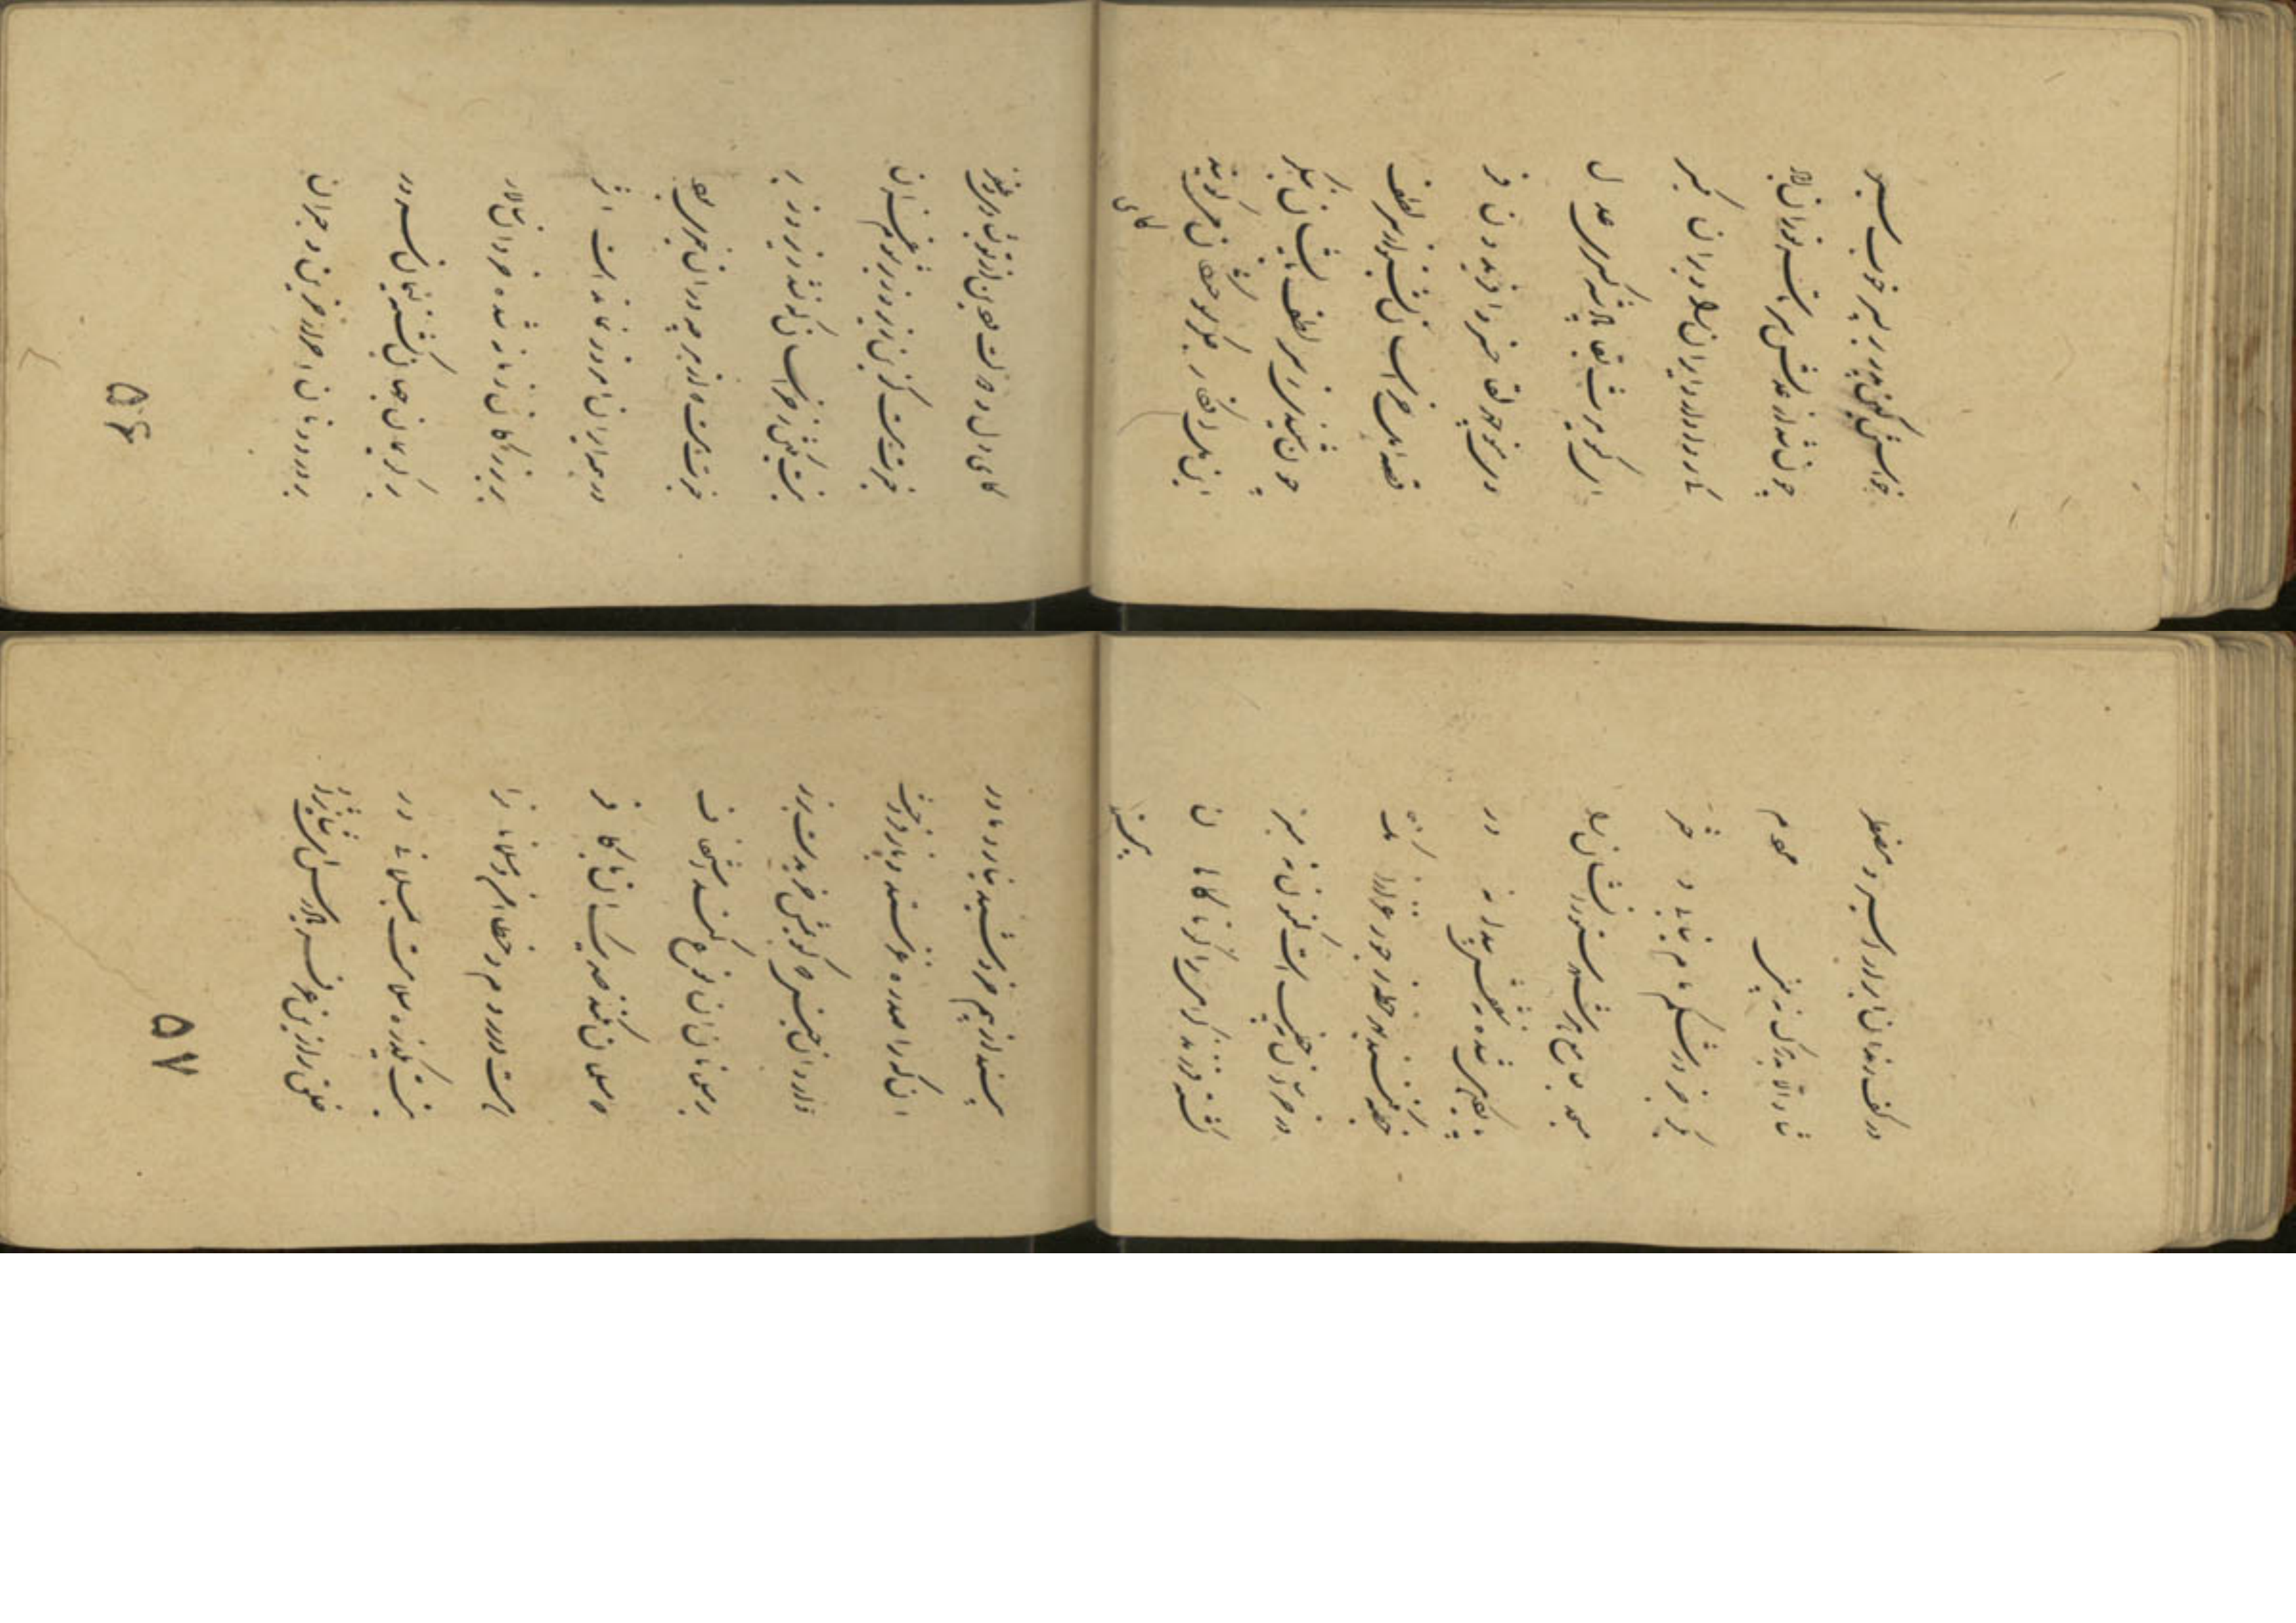 خواستش کین پدر بر پسر خوب سیر
چون شد از عدلش سرتاسر توران آباد
کی روا دارد ایران را ویران یکسر
ای کیومرث بقا پادشه کسری عدل
وی منوچهر لقا خسرو افریدون فر
قصه اهل خراسان بشنو از سر لطف
چون شنیدی ز سر لطف بایشان بنگر
این دل افکار جگر سوختگان میگویند
کای
کای دل و دولت و دین از تو بشادی و ظفر
خبرت هست کزین زیر و زبر شوم غزان
نیست یک پی ز خراسان که نشد زیر و زبر
خبرت هست که از هر چه در آن خیری بود
در همه ایران امروز نماند است اثر
بر بزرگان زمانه شده خردان سالار
بر کریمان جهان گشته لئیمان سرور
بر در دونان احرار حزین و حیران
۵۶
در کف رندان ابرار اسیر و مضطر
شاد الا بدر مرگ نبینی مردم
بکر جز در شکم مام نیابی دختر
مسجد جامع هر شهر ستورانشان را
پایگاهی شده نه سقفش پیدا نه در
خطبه نکنند بهر خطه
در خراسان نه خطیب است کنون نه منبر
کشته فرزند گرامی را گر ناگاهان
بیند
بیند از بیم خروشید نیارد مادر
آن که را صد ره غز زر ستد و باز فروخت
دارد آن جنس که گویش خریدست بزر
بر مسلمانان آن نوع کنند استخفاف
که مسلمان نکند صد یک از آن با کافر
هست در روم و خطا امن مسلمانان را
نیست یک ذره سلامت بمسلمانی در
خلق را زین غم فریاد رس ای شاه نژاد
۵۷